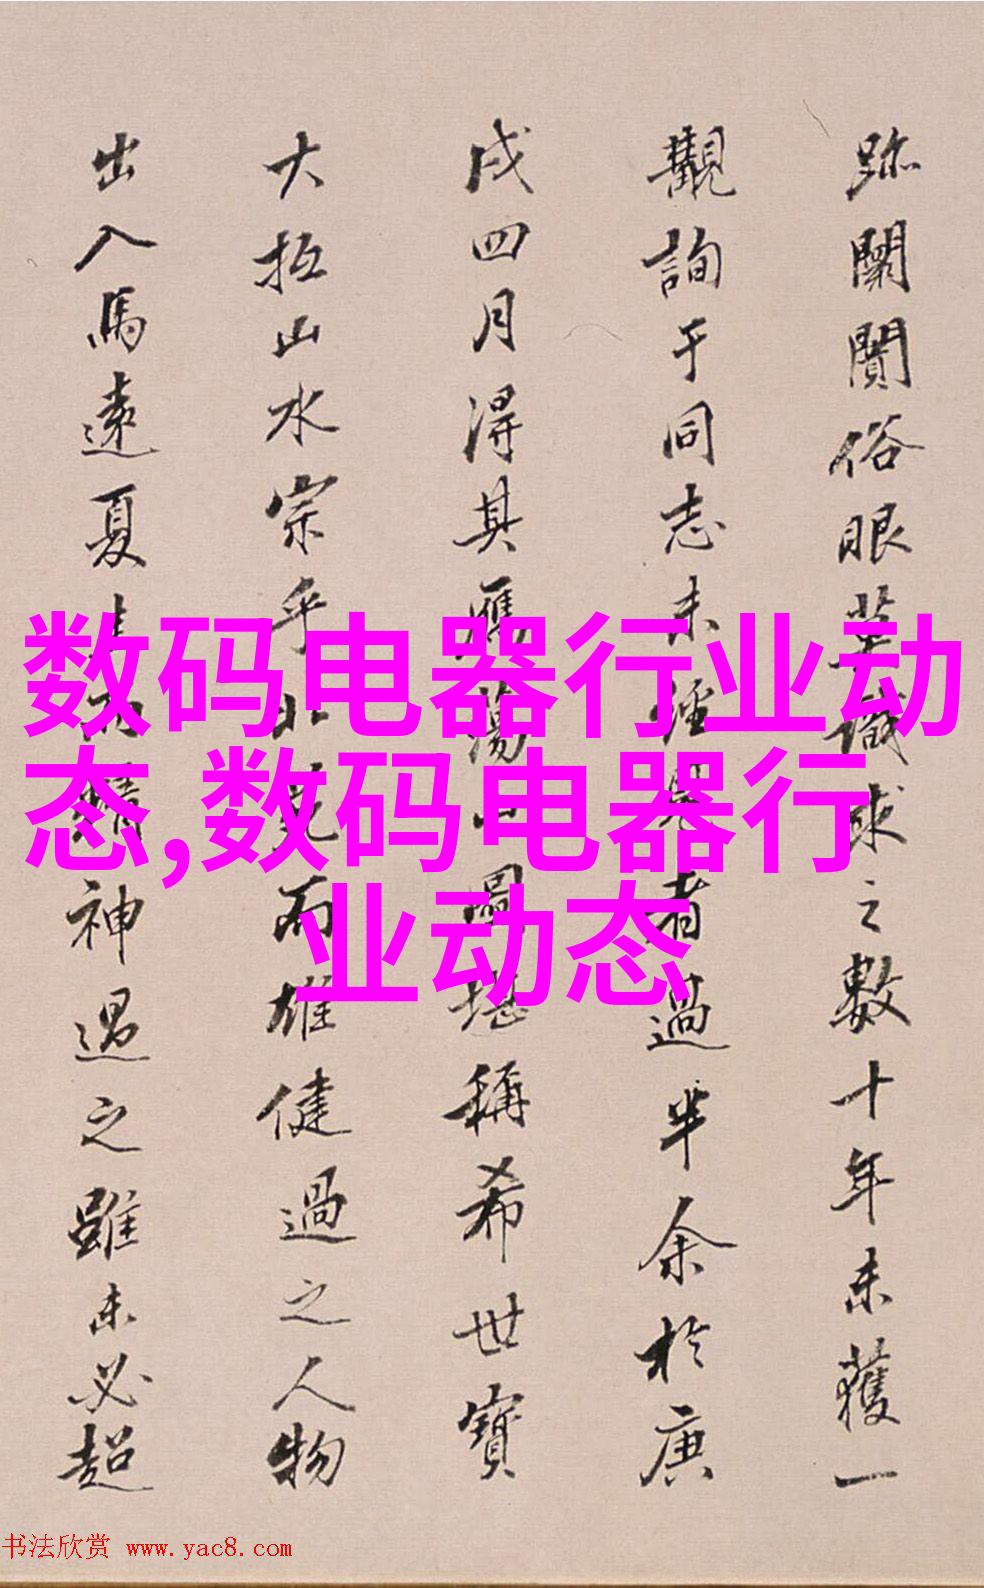 跡闤闠俗眼莫識求之數十年未獲一
觀詢于同志未經見者過半余於庚
戌四月得其應蕩山圖堪稱希世寶
大抵山水宗乎北苑而雄健過之人物
出入馬遠夏神過之雖未必超
数码电器行业动
态,数码电器行
业动态
书法欣赏 www.yac8.com